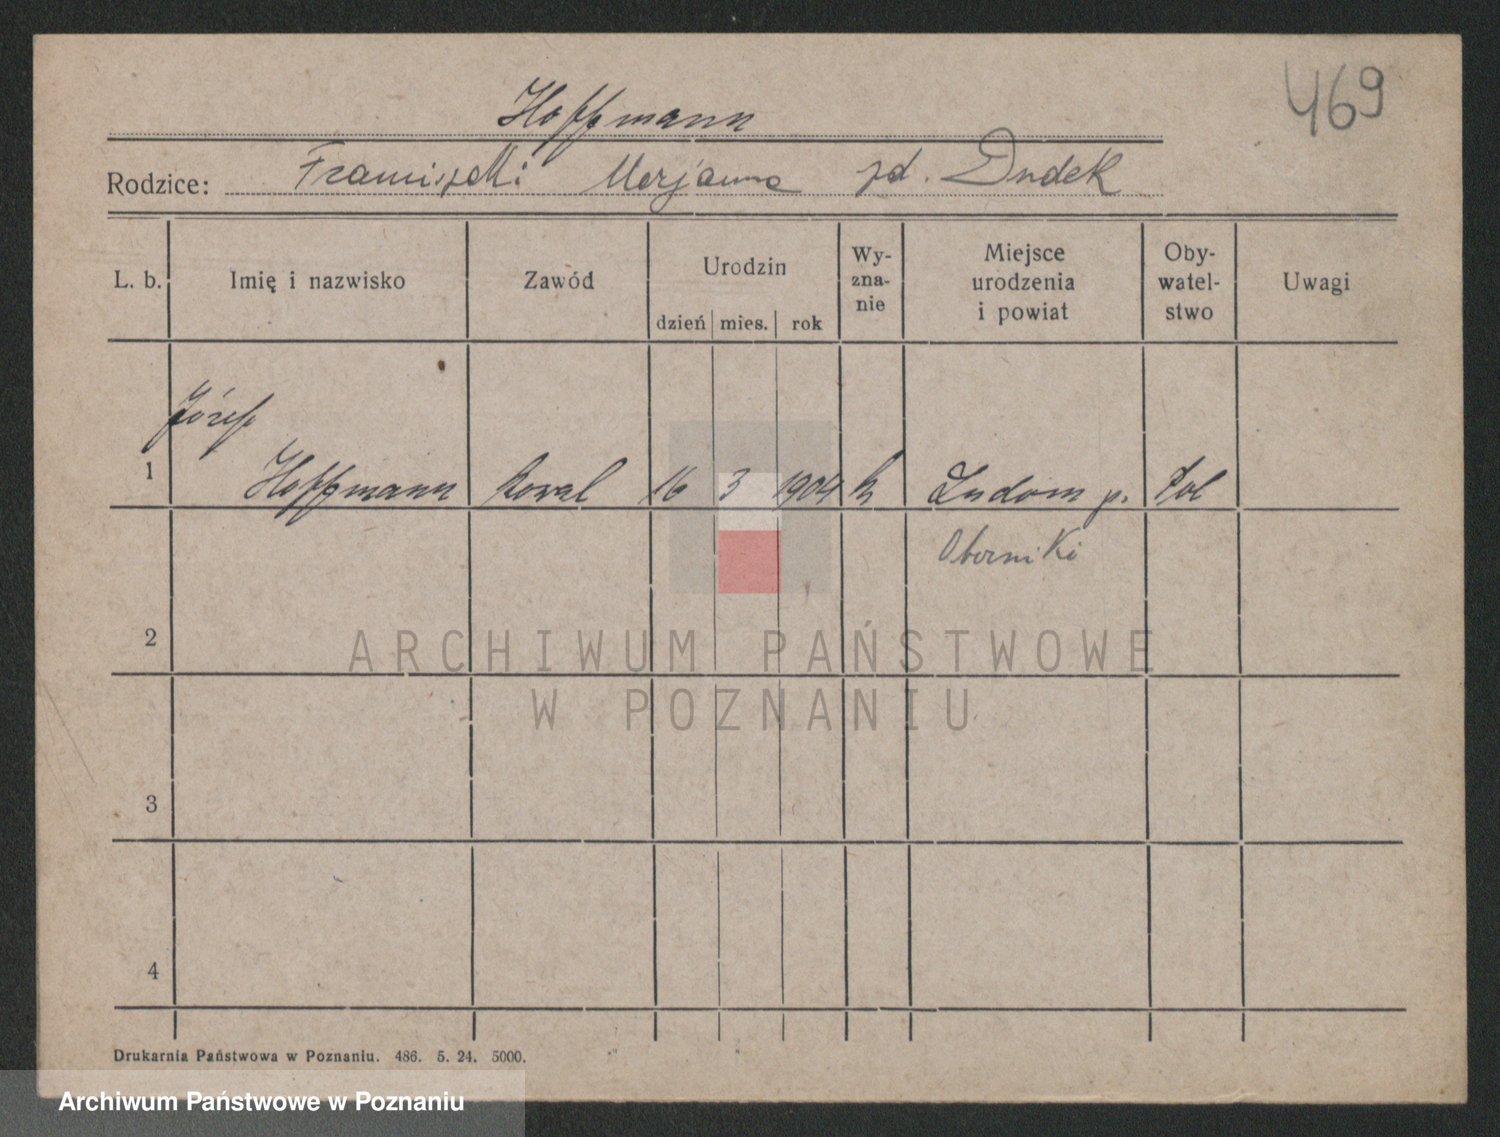 469
Hoffmann
Rodzice: Franciszek i Marjanna zd. Dudek
L. b. Imię i nazwisko Zawód Urodzin dzień mies. rok Wy-zna-nie Miejsce urodzenia i powiat Oby-watel-stwo Uwagi
Józef
1 Hoffmann kowal 16 3 1904 k Ludom p. Pol
Oborniki
2
ARCHIWUM PAŃSTWOWE
W POZNANIU
3
4
Drukarnia Państwowa w Poznaniu. 486. 5. 24. 5000.
Archiwum Państwowe w Poznaniu